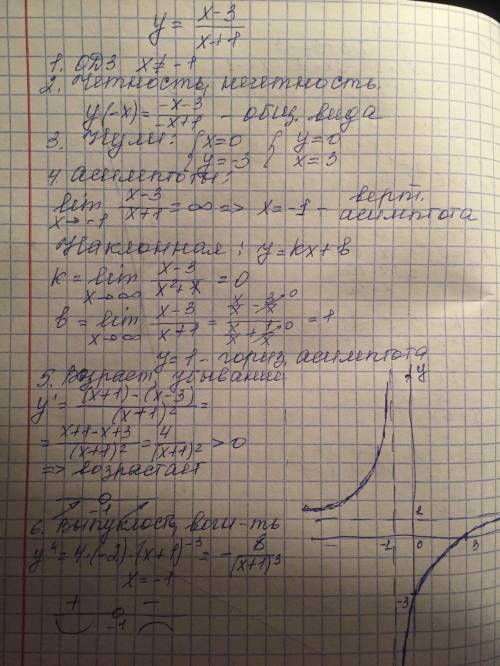 y = (x-3)/(x+1)
1. ОДЗ x ≠ -1
2. Четность, нечетность.
y(-x) = (-x-3)/(-x+1) - общ. вида
3. Нули: { x=0 { y=0
y=-3 x=3
4 Асимптоты:
lim x→-1 (x-3)/(x+1) = ∞ => x=-1 - верт. асимптота
Наклонная: y=kx+b
k = lim x→∞ (x-3)/(x²+x) = 0
b = lim x→∞ (x-3)/(x+1) = (x/x - 3/x→0)/(x/x + 1/x→0) = 1
y=1 - гориз. асимптота
5. Возраст, убывание
y' = ((x+1)-(x-3))/(x+1)² =
= (x+1-x+3)/(x+1)² = 4/(x+1)² > 0
=> возрастает
-1
6. Выпуклость, вогн-ть
y" = 4·(-2)·(x+1)⁻³ = - 8/(x+1)³
x=-1
+ -
-1
y
1
-1 0 3
-3